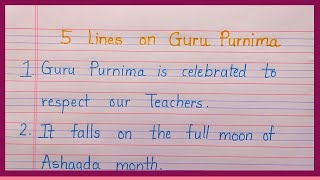 5 Lines on Guru Purnima
1 Guru Purnima is celebrated to
respect our Teachers.
2. It falls on the full moon of
Ashaada month.